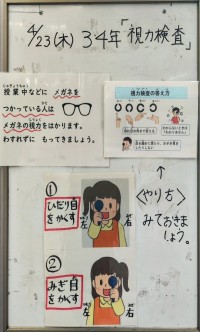 4/23(木) 34年「視力検査」
授業中などに メガネを
つかっている人は
メガネの視力をはかります。
わすれずに もってきましょう。
視力検査の答え方
↑
〈やり方〉
みておきましょう。
①
ひだり目
をかくす
左
右
②
みぎ目
をかくす
左
右